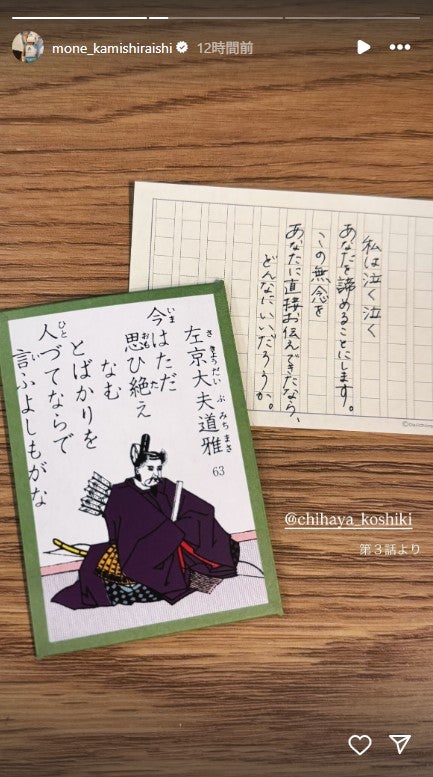 mone_kamishiraishi 12時間前
私は泣く泣く
あなたを諦めることにします。
この無念を
あなたに直接お伝えできたなら、
どんなにいいだろうか。
左京大夫道雅
さきょうだいぶみちまさ
63
今はただ
いま
思ひ絶え
おもた
なむ
とばかりを
人づてならで
ひと
言ふよしもがな
い
@chihaya_koshiki
第3話より